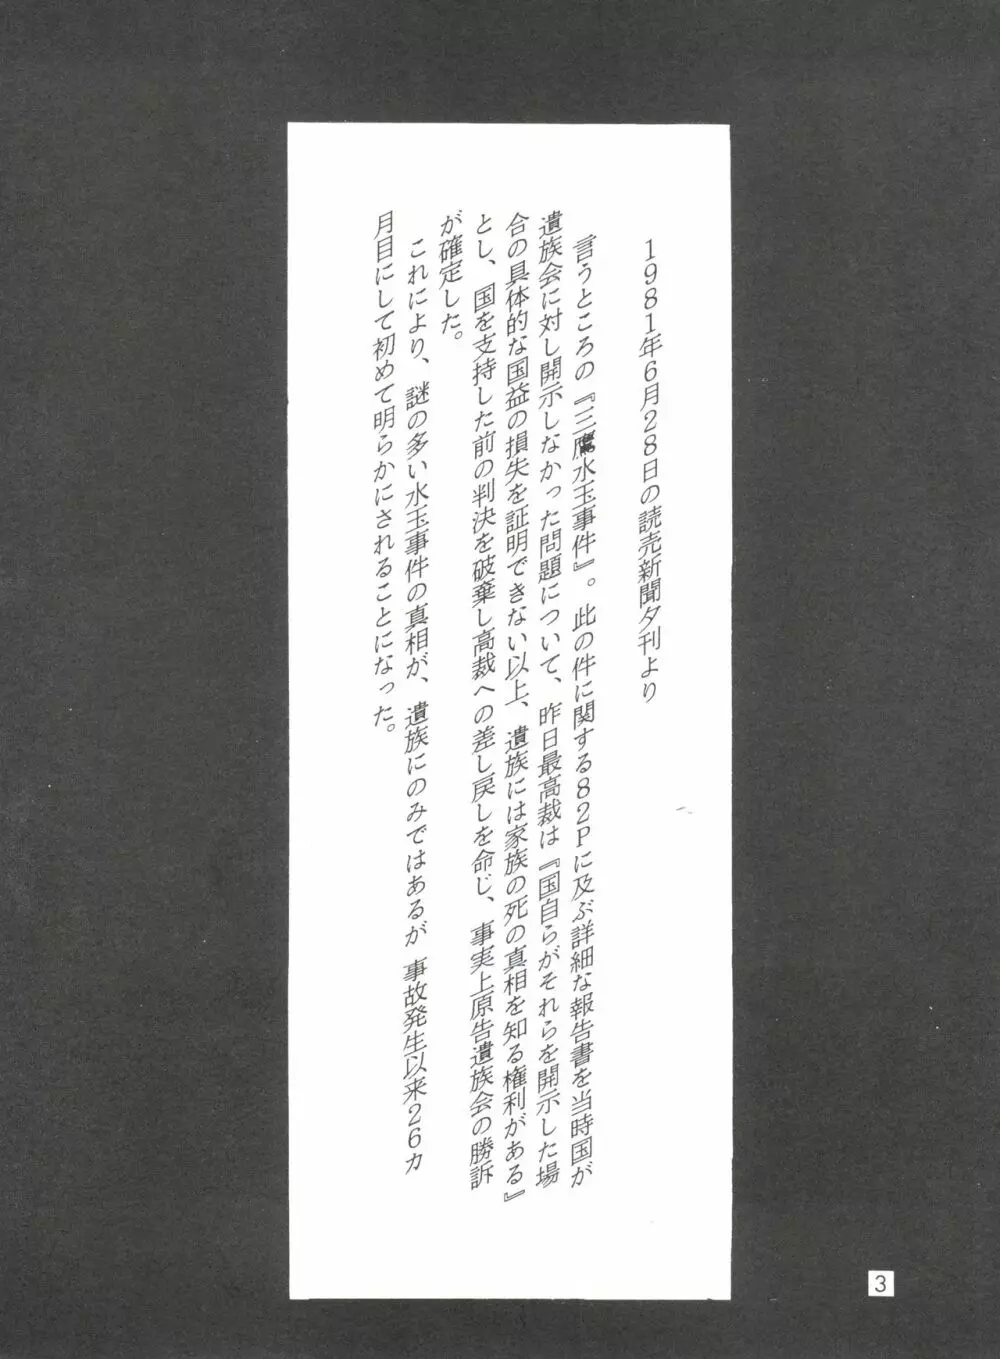 1981年6月28日の読売新聞夕刊より
言うところの『三鷹水玉事件』。此の件に関する82Pに及ぶ詳細な報告書を当時国が
遺族会に対し開示しなかった問題について、昨日最高裁は『国自らがそれらを開示した場
合の具体的な国益の損失を証明できない以上、遺族には家族の死の真相を知る権利がある』
とし、国を支持した前の判決を破棄し高裁への差し戻しを命じ、事実上原告遺族会の勝訴
が確定した。
これにより、謎の多い水玉事件の真相が、遺族にのみではあるが 事故発生以来26カ
月目にして初めて明らかにされることになった。
3